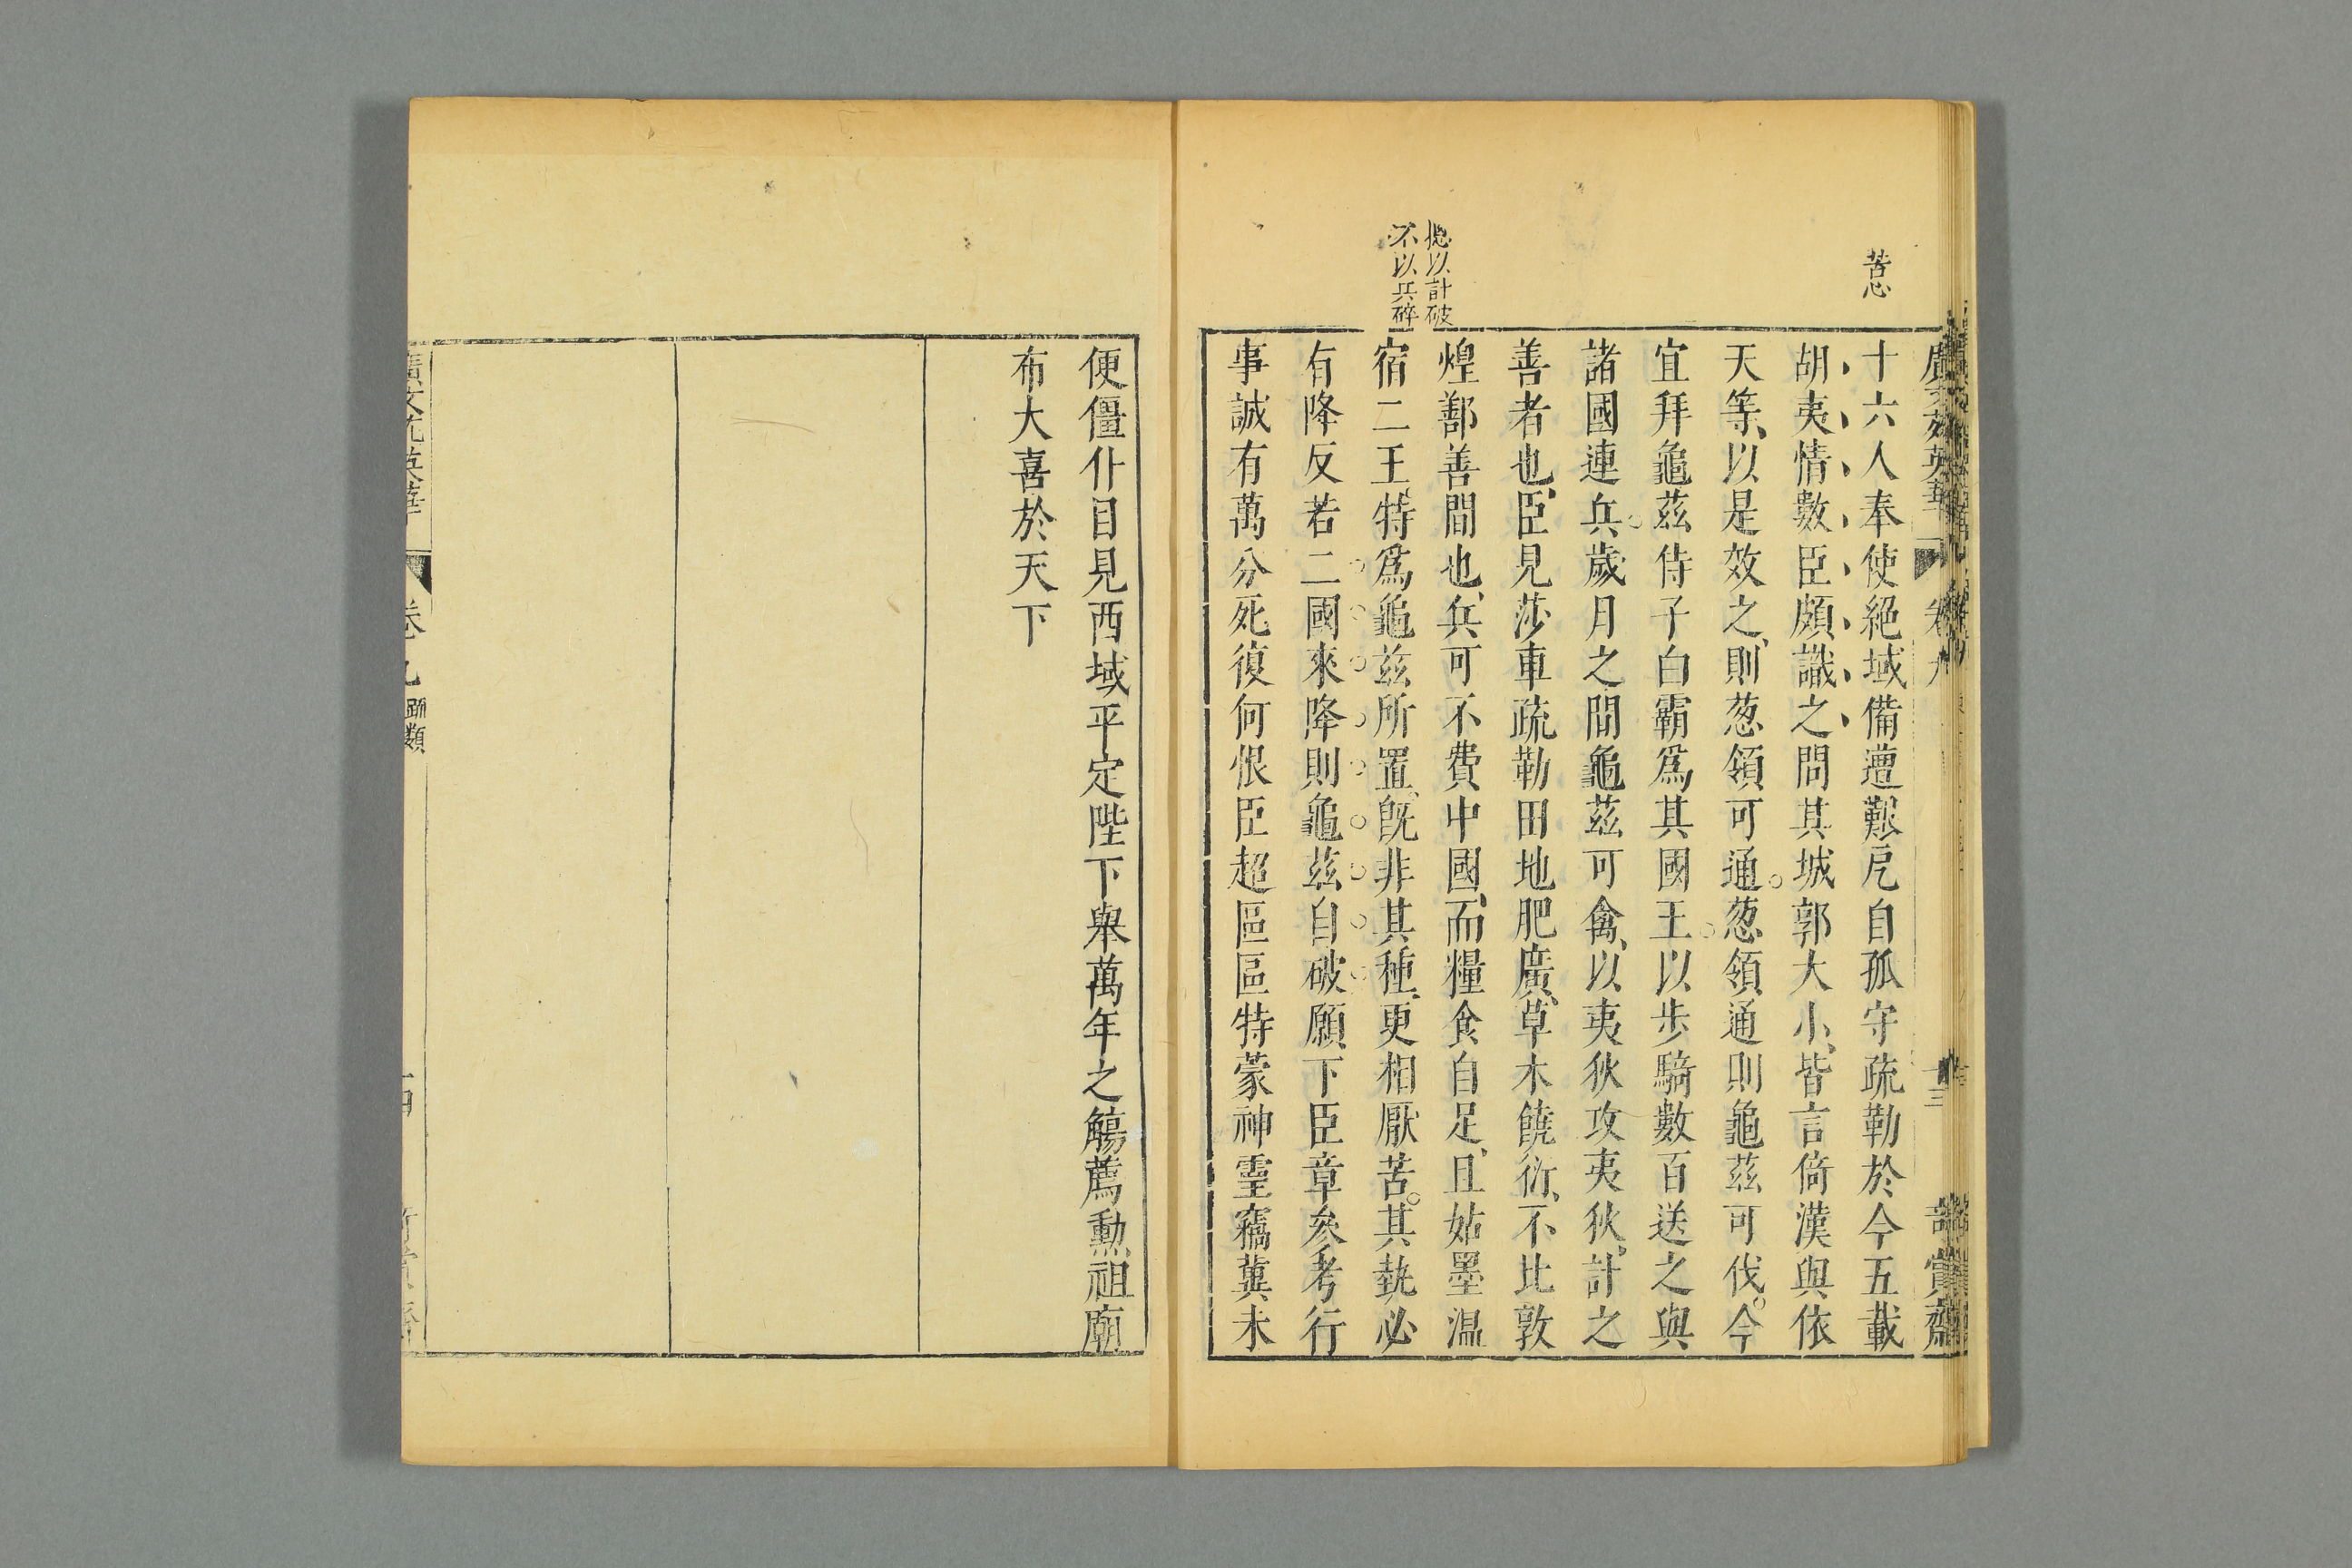 苦心
十六人奉使絕域備遭艱戹自孤守疏勒於今五載
胡夷情數臣頗識之問其城郭大小、皆言倚漢與依
天等、以是效之、則葱領可通。葱領通則龜茲可伐。今
宜拜龜茲侍子白霸爲其國王。以步騎數百送之與
諸國連兵。歲月之間龜茲可禽、以夷狄攻夷狄。計之
善者也、臣見莎車疏勒田地肥廣、草木饒衍、不比敦
總以計破
不以兵碎
煌鄯善間也、兵可不費中國、而糧食自足、且姑墨溫
宿二王、特爲龜茲所置、旣非其種、更相厭苦。其埶必
有降反若二國來降則龜茲自破願下臣章參考行
事誠有萬分死復何恨臣超區區特蒙神靈竊冀未
便僵仆目見西域平定陛下舉萬年之觴薦勳祖廟
布大喜於天下
卷九